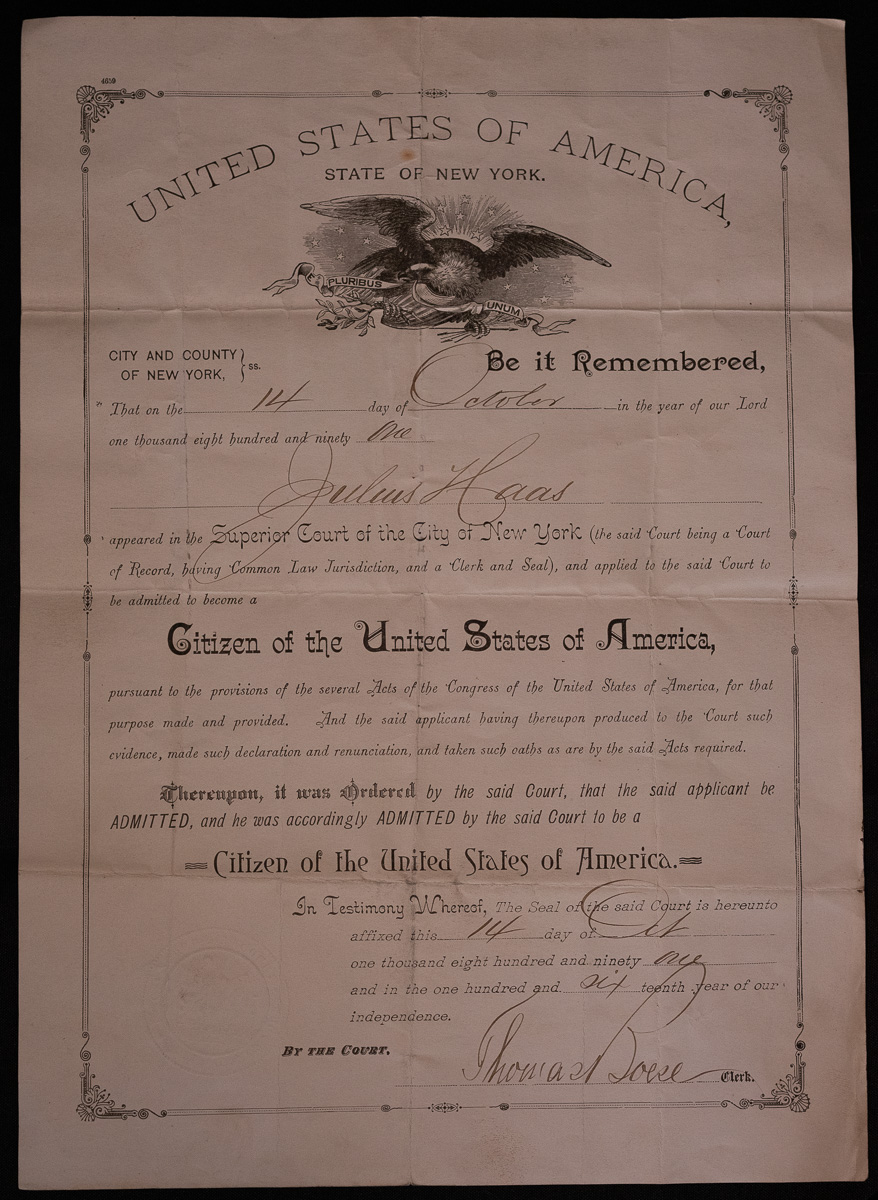 4659
UNITED STATES OF AMERICA,
STATE OF NEW YORK.
E PLURIBUS UNUM
CITY AND COUNTY OF NEW YORK, } ss.
Be it Remembered,
That on the 14 day of October in the year of our Lord
one thousand eight hundred and ninety one
Julius Haas
appeared in the Superior Court of the City of New York (the said Court being a Court
of Record, having Common Law Jurisdiction, and a Clerk and Seal), and applied to the said Court to
be admitted to become a
Citizen of the United States of America,
pursuant to the provisions of the several Acts of the Congress of the United States of America, for that
purpose made and provided. And the said applicant having thereupon produced to the Court such
evidence, made such declaration and renunciation, and taken such oaths as are by the said Acts required.
Thereupon, it was Ordered by the said Court, that the said applicant be
ADMITTED, and he was accordingly ADMITTED by the said Court to be a
Citizen of the United States of America.
In Testimony Whereof, The Seal of the said Court is hereunto
affixed this 14 day of Oct
one thousand eight hundred and ninety one
and in the one hundred and six teenth year of our
independence.
BY THE COURT.
Thomas Boese Clerk.